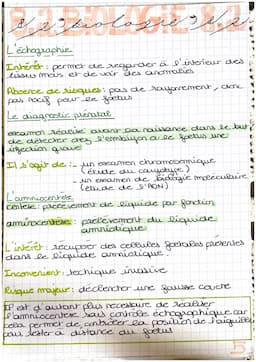 L'échographie
Intérêt : permet de regarder à l'intérieur des
tissus mais et de voir des anomalies
Absence de risques : pas de rayonnement, donc
pas nocif pour le foetus
Le diagnostic prénatal
examen réalisé avant sa naissance dans le but
de détecter chez l'embryon ou le foetus une
affection grave
Il s'agit de : - un examen chromosomique
(étude du caryotype)
- un examen de biologie moléculaire
(étude de l'ADN)
L'amniocentèse
centèse : prélèvement de liquide par ponction
amniocentèse : prélèvement du liquide
amniotique
L'intérêt : récupérer des cellules foetales présentes
dans le liquide amniotique.
Inconvenient : technique invasive
Risque majeur : déclencher une fausse couche
Il est d'autant plus necessaire de réaliser
l'amniocentèse sous contrôle échographique car
cela permet de contrôler la position de l'aiguille
ou rester à distance du foetus